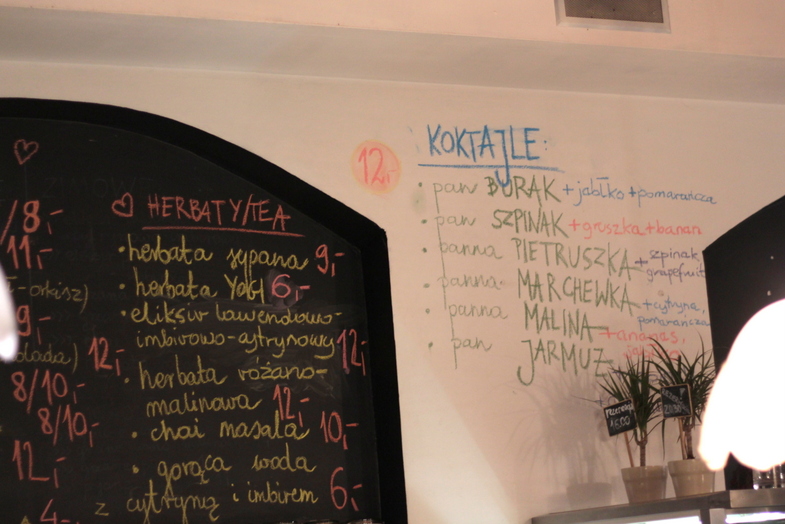 /8,-
11,-
-orkisz)
9,-
12,-
8/10,-
8/10,-
12,-
4,-
HERBATY/TEA
•herbata sypana 9,-
•herbata YOGI 6,-
•eliksir lawendowo-
imbirowo-cytrynowy 12,-
•herbata różano-
malinowa 12,-
•chai masala 10,-
•gorąca woda
z cytryną i imbirem 6,-
12,-
KOKTAJLE:
•pan BURAK +jabłko +pomarańcza
•pan SZPINAK +gruszka+banan
•panna PIETRUSZKA +szpinak,
grapefruit
•panna MARCHEWKA +cytryna,
pomarańcza
•panna MALINA +ananas,
•pan JARMUŻ